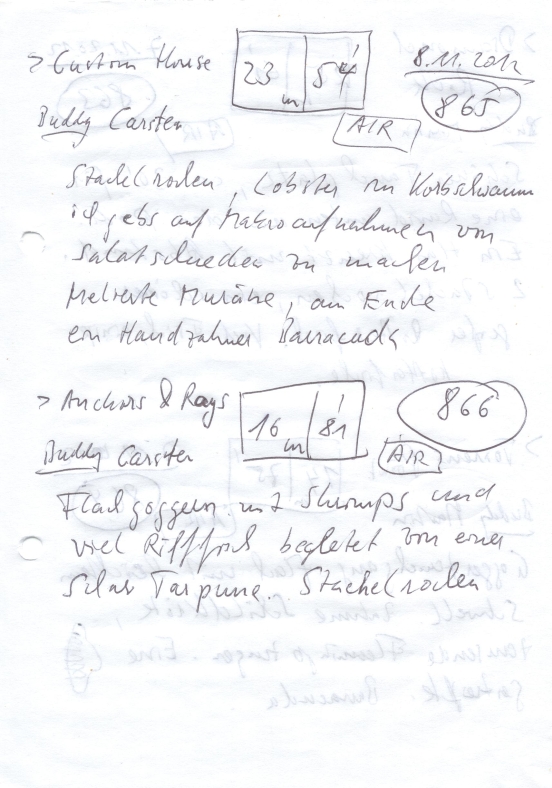 > Custom House 23 m 54' 8.11.2012
865
Buddy Carsten AIR
Stachelrochen, Lobster im Korbschwamm
ich gebs auf Makroaufnahmen von
Salatschnecken zu machen
Mehrere Muräne, am Ende
ein Handzahmer Barracuda
> Anchors & Rays 16 m 81' 866
Buddy Carsten AIR
Flachgoggern mit Shrimps und
viel Rifffisch begleitet von einer
Schar Tarpune. Stachelrochen